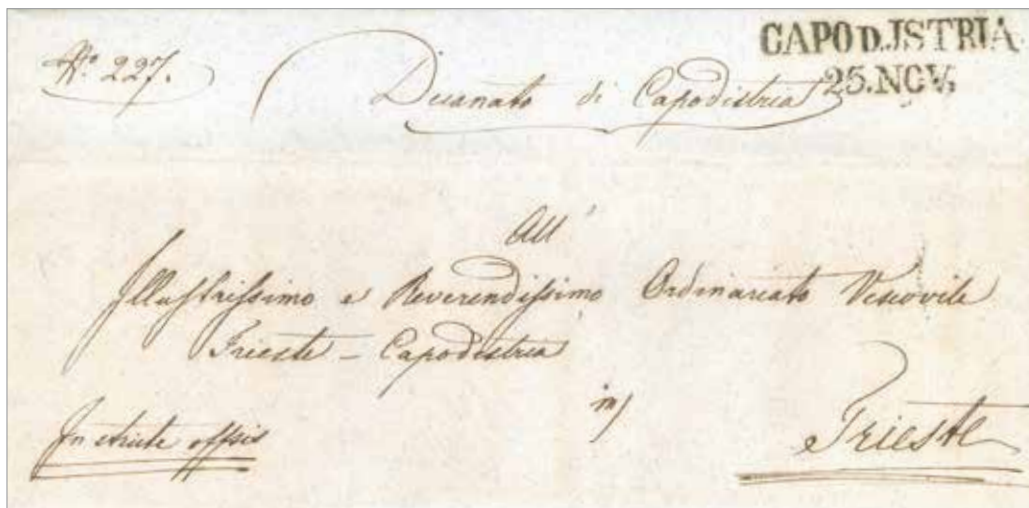 CAPO D. JSTRIA.
25. NOV.
N.º 227.
Decanato di Capodistria
All'
Illustrissimo e Reverendissimo Ordinariato Vescovile
Trieste - Capodistria
in
Trieste
In